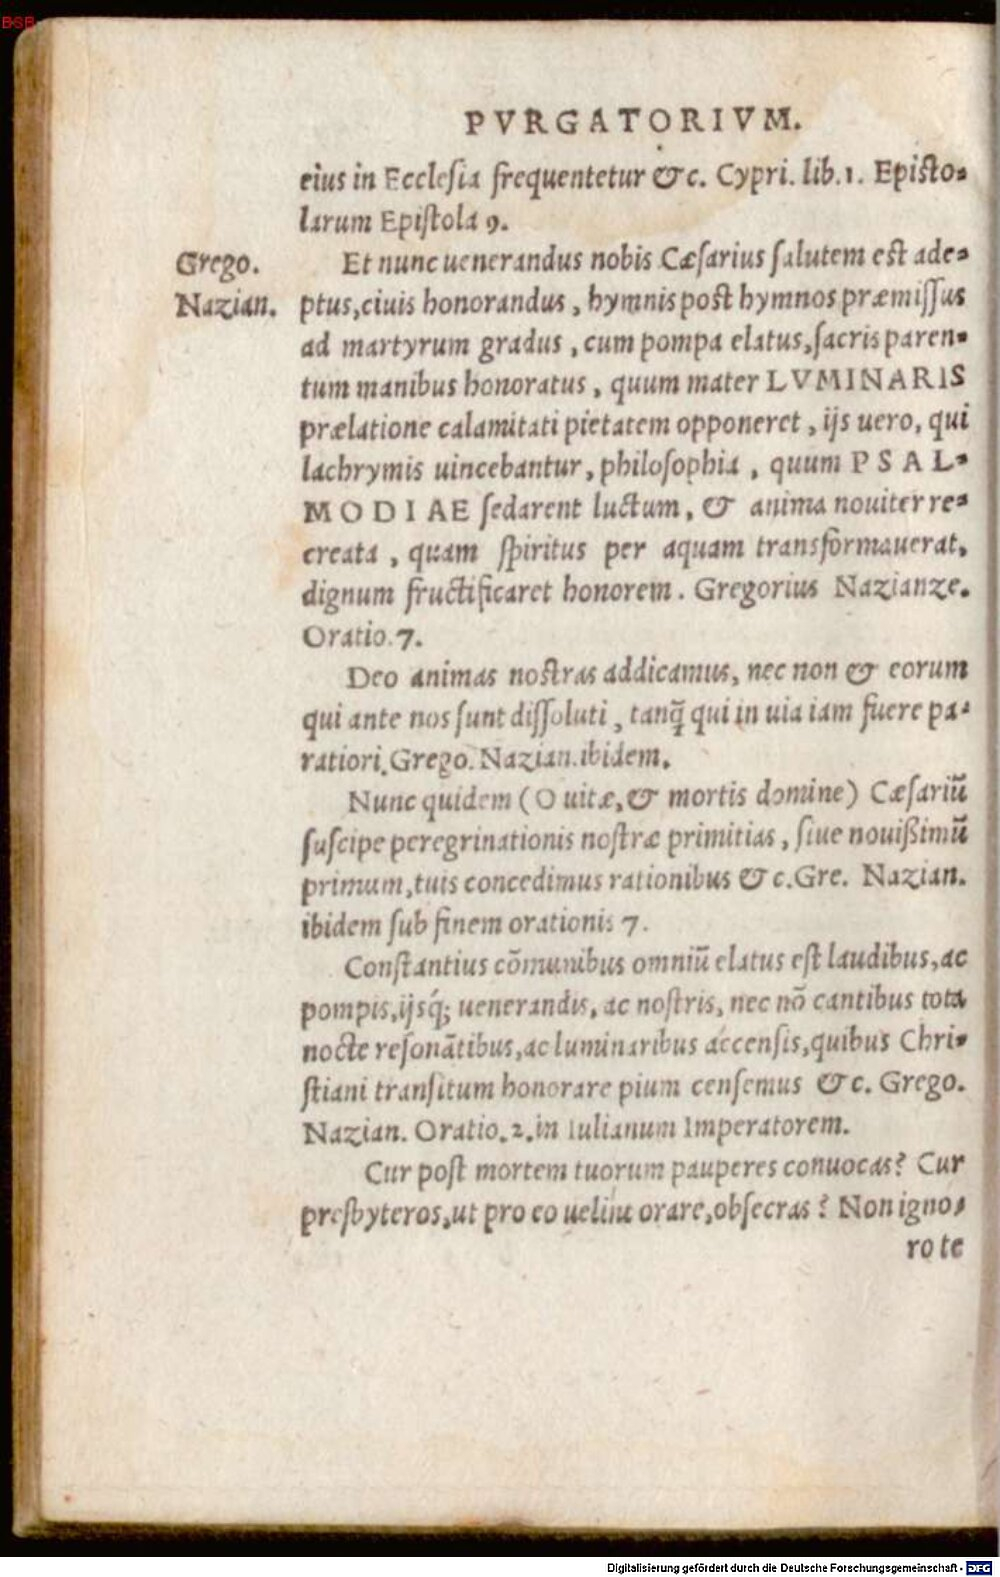 BSB
PVRGATORIVM.
eius in Ecclesia frequentetur &c. Cypri. lib.1. Episto-
larum Epistola 9.
Grego.
Nazian.
Et nunc uenerandus nobis Cæsarius salutem est ade-
ptus, ciuis honorandus, hymnis post hymnos præmissus
ad martyrum gradus, cum pompa elatus, sacris paren-
tum manibus honoratus, quum mater LVMINARIS
prælatione calamitati pietatem opponeret, ijs uero, qui
lachrymis uincebantur, philosophia, quum PSAL-
MODIAE sedarent luctum, & anima nouiter re-
creata, quam spiritus per aquam transformauerat,
dignum fructificaret honorem. Gregorius Nazianze.
Oratio.7.
Deo animas nostras addicamus, nec non & eorum
qui ante nos sunt dissoluti, tanq̃ qui in uia iam fuere pa-
ratiori. Grego. Nazian. ibidem.
Nunc quidem (O uitæ, & mortis domine) Cæsariũ
suscipe peregrinationis nostræ primitias, siue nouißimũ
primum, tuis concedimus rationibus &c. Gre. Nazian.
ibidem sub finem orationis 7.
Constantius cõmunibus omniũ elatus est laudibus, ac
pompis, ijsq́; uenerandis, ac nostris, nec nõ cantibus tota
nocte resonãtibus, ac luminaribus accensis, quibus Chri-
stiani transitum honorare pium censemus &c. Grego.
Nazian. Oratio.2. in Iulianum Imperatorem.
Cur post mortem tuorum pauperes conuocas? Cur
presbyteros, ut pro eo uelint orare, obsecras? Non igno-
ro te
Digitalisierung gefördert durch die Deutsche Forschungsgemeinschaft - DFG